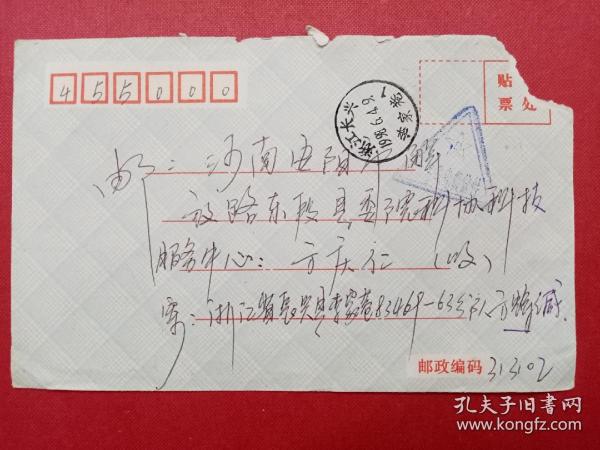 455000
贴
票 处
浙江长兴
1998.6.4.9
邮：河南安阳市解
放路东段县委院科协科技
服务中心：方庆仁（收）
寄：浙江省长兴县李家巷83469-63分队方 缄.
邮政编码 313102
孔夫子旧书网
www.kongfz.com